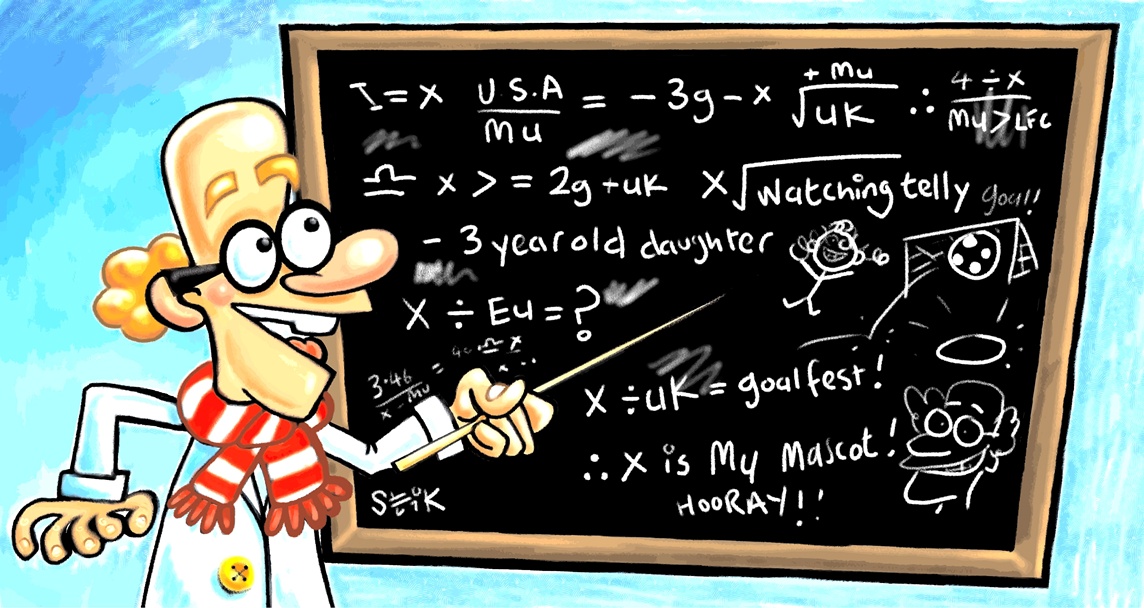 I = x U.S.A / mu = -3g - x +mu / √uk ∴ 4 ÷ x / mu > LFC
♎ x > = 2g + uk x√watching telly goal!!
- 3 year old daughter
X ÷ Eu = ?
3.46 / x - mu =
X ÷ uK = goalfest!
∴ X is My Mascot!
HOORAY!!